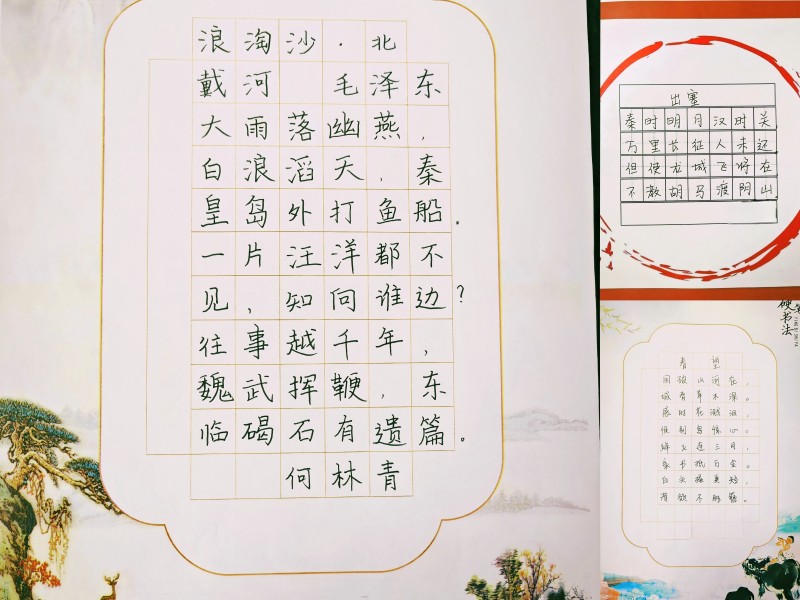 浪淘沙·北
戴河 毛泽东
大雨落幽燕，
白浪滔天，秦
皇岛外打鱼船.
一片汪洋都不
见，知向谁边？
往事越千年，
魏武挥鞭，东
临碣石有遗篇。
何林青
出塞
秦时明月汉时关
万里长征人未还
但使龙城飞将在
不教胡马渡阴山
硬笔书法
春望
国破山河在，
城春草木深。
感时花溅泪，
恨别鸟惊心。
烽火连三月，
家书抵万金。
白头搔更短，
浑欲不胜簪。